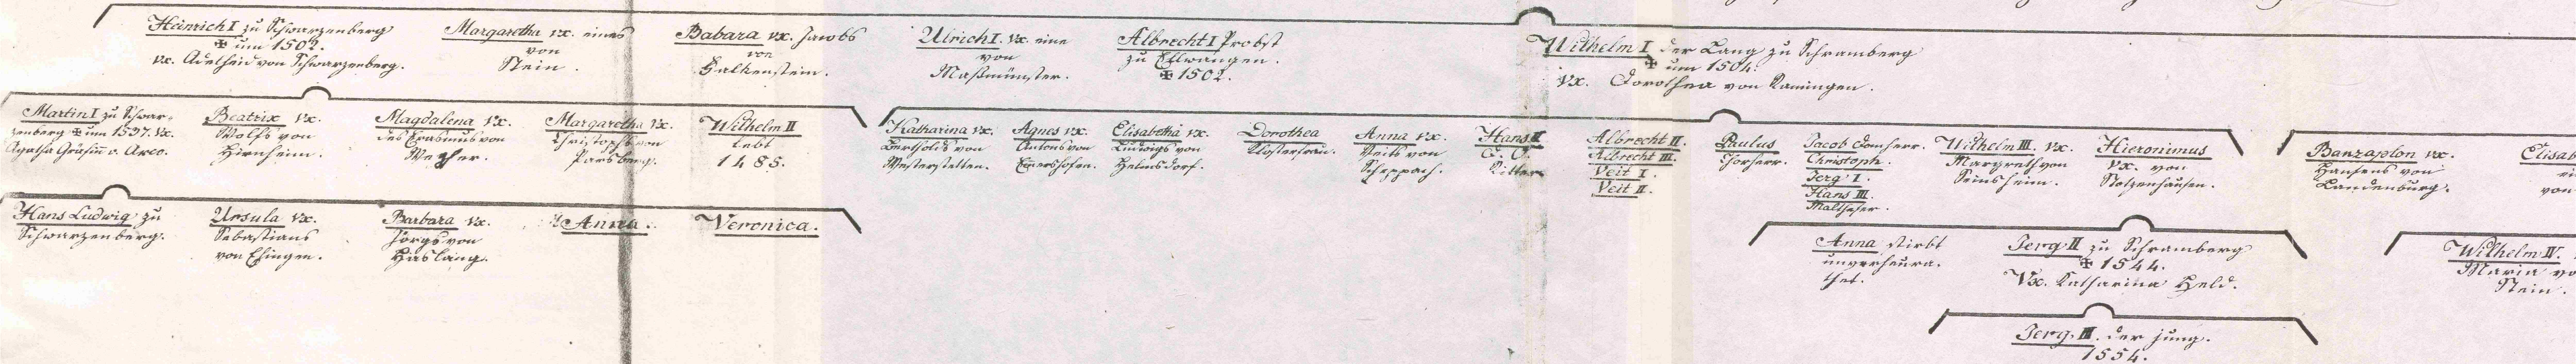 Heinrich I zu Schwarzenberg
✠ um 1502.
vx. Adelheid von Schwarzenberg.
Margaretha vx. eines
von
Stein.
Babara vx. Jacobs
von
Falkenstein.
Ulrich I. vx. eine
von
Maßmünster.
Albrecht I Probst
zu Ellwangen.
✠ 1502.
Wilhelm I der Lang zu Schramberg
✠ um 1504.
vx. Dorothea von
Martin I zu Schwar-
zenberg ✠ um 1537. vx.
Agatha Gräfin v. Arco.
Beatrix vx.
Wolfs von
Hirnheim.
Magdalena vx.
des Erasmus von
Margaretha vx.
Christophs von
Parsberg.
Wilhelm II
lebt
1485.
Katharina vx.
Bertholds von
Westerstetten.
Agnes vx.
Antons von
Emershofen.
Elisabetha vx.
Ludwigs von
Helmsdorf.
Dorothea
Klosterfrau.
Anna vx.
Veits von
Scheppach.
Hans II
Ritter
Albrecht II.
Albrecht III.
Veit I.
Veit II.
Paulus
Chorherr.
Jacob Domherr.
Christoph.
Jerg I.
Hans III.
Maltheser.
Wilhelm III. vx.
Margreth von
Seinsheim.
Hieronimus
vx. von
Stotzenhausen.
Banzaplon vx.
Hansens von
Landenburg.
Elisab
von
Hans Ludwig zu
Schwarzenberg.
Ursula vx.
Sebastians
von Ehingen.
Barbara vx.
Jörgs von
Haslang.
Anna.
Veronica.
Anna stirbt
unverheura-
thet.
Jerg II zu Schramberg
✠ 1544.
Vx. Katharina Held.
Wilhelm IV.
Maria vo
Stein.
Jerg III. der jung.
1554.